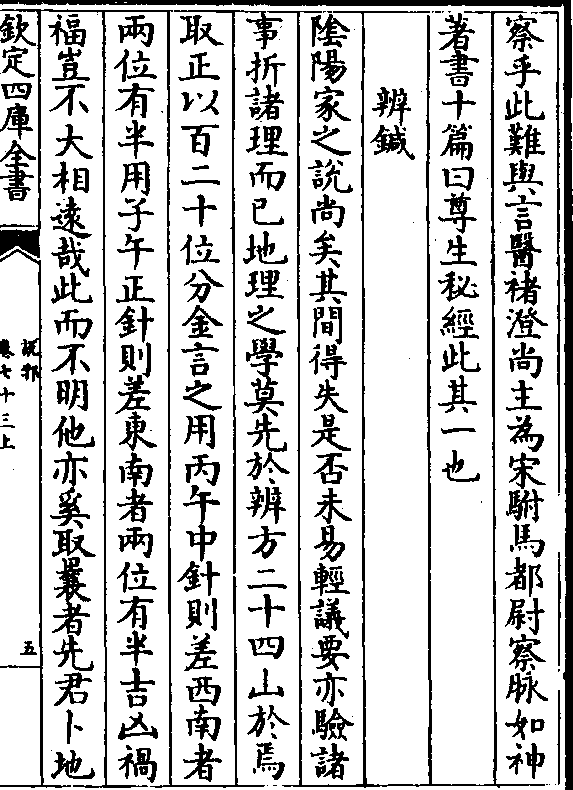 察乎此難與言醫褚澄尚主為宋駙馬都尉察脉如神
著書十篇曰尊生秘經此其一也
辨鍼
陰陽家之說尚矣其間得失是否未易輕議要亦驗諸
事折諸理而已地理之學莫先於辨方二十四山於焉
取正以百二十位分金言之用丙午中針則差西南者
兩位有半用子午正針則差東南者兩位有半吉凶禍
福豈不大相遠哉此而不明他亦奚取曩者先君卜地
欽定四庫全書
說郛
卷七十三上
五